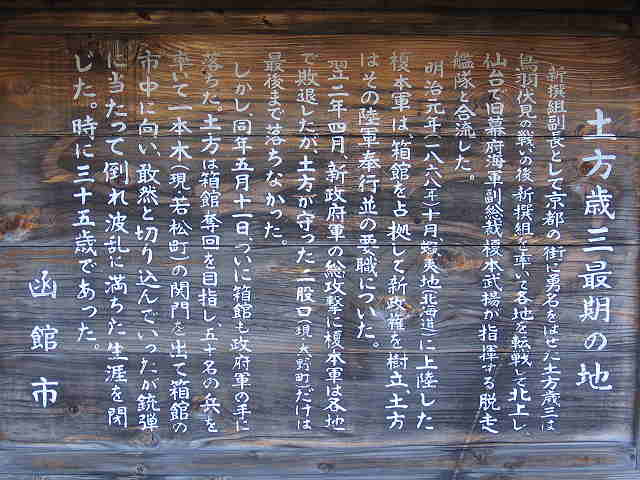 土方歳三最期の地
新撰組副長として京都の街に勇名をはせた土方歳三は
鳥羽伏見の戦いの後新撰組を率いて各地を転戦して北上し、
仙台で旧幕府海軍副総裁榎本武揚が指揮する脱走
艦隊と合流した。
明治元年(一八六八年)十月、蝦夷地(北海道)に上陸した
榎本軍は、箱館を占拠して新政権を樹立、土方
はその陸軍奉行並の要職についた。
翌二年四月、新政府軍の総攻撃に榎本軍は各地
で敗退したが土方が守った二股口(現・大野町)だけは
最後まで落ちなかった。
しかし、同年五月十一日ついに箱館も政府軍の手に
落ちた。土方は箱館奪回を目指し、五十名の兵を
率いて一本木(現若松町)の関門を出て箱館の
市中に向い、敢然と切り込んでいったが銃弾
に当たって倒れ波乱に満ちた生涯を閉
じた。時に三十五歳であった。
函館市